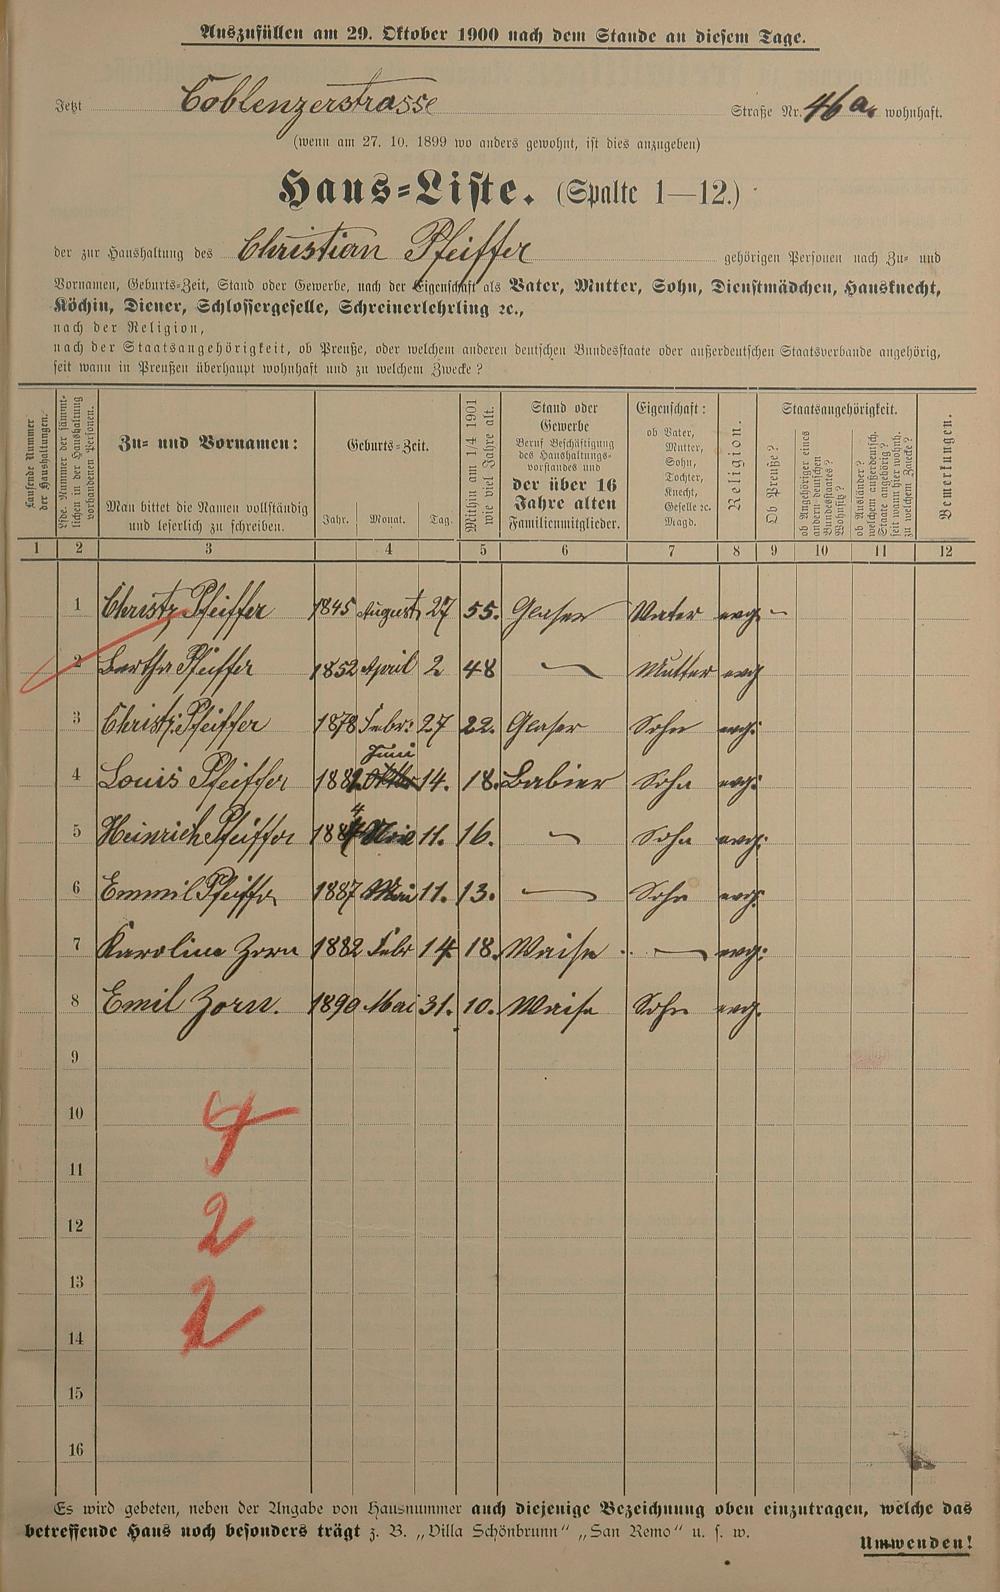 Auszufüllen am 29. Oktober 1900 nach dem Stande an diesem Tage.
Jetzt Coblenzerstrasse Straße Nr. 46a. wohnhaft.
(wenn am 27. 10. 1899 wo anders gewohnt, ist dies anzugeben)
Haus-Liste. (Spalte 1—12.)
der zur Haushaltung des Christian Pfeiffer gehörigen Personen nach Zu- und
Vornamen, Geburts-Zeit, Stand oder Gewerbe, nach der Eigenschaft als Vater, Mutter, Sohn, Dienstmädchen, Hausknecht,
Köchin, Diener, Schlossergeselle, Schreinerlehrling ꝛc.,
nach der Religion,
nach der Staatsangehörigkeit, ob Preuße, oder welchem anderen deutschen Bundesstaate oder außerdeutschen Staatsverbande angehörig,
seit wann in Preußen überhaupt wohnhaft und zu welchem Zwecke?
Laufende Nummer
der Haushaltungen.
Lfde. Nummer der sämmt-
lichen in der Haushaltung
vorhandenen Personen.
Zu- und Vornamen:
Man bittet die Namen vollständig
und leserlich zu schreiben.
Geburts-Zeit.
Jahr. Monat. Tag.
Mithin am 1/4 1901
wie viel Jahre alt.
Stand oder
Gewerbe
Beruf Beschäftigung
des Haushaltungs-
vorstandes und
der über 16
Jahre alten
Familienmitglieder.
Eigenschaft:
ob Vater,
Mutter,
Sohn,
Tochter,
Knecht,
Geselle ꝛc.
Magd.
Religion.
Staatsangehörigkeit.
Ob Preuße?
ob Angehöriger eines
andern deutschen
Bundesstaates?
Wohnsitz?
ob Ausländer?
welchem außerdeutsch.
Staate angehörig?
seit wann hier wohnh.
zu welchem Zwecke?
Bemerkungen.
1 2 3 4 5 6 7 8 9 10 11 12
1 Christ. Pfeiffer 1845 August 27 55. Glaser Vater evg. –
2 Bertha Pfeiffer 1852 April 2 48 — Mutter evg
3 Christ. Pfeiffer 1878 Febr: 27 22. Glaser Sohn evg:
Juni
4 Louis Pfeiffer 1882 14. 18. Babier Sohn evg:
4
5 Heinrich Pfeiffer 188 11. 16. — Sohn evg:
6 Emmil Pfeiffer 1887 Mai 11. 13. — Sohn evg:
7 Karolina Zorn 1882 Febr 14. 18. Waise — evg:
8 Emil Zorn. 1890 Mai 31. 10. Waise Sohn evg.
9
10
11
12
2
13
14
2
15
16
Es wird gebeten, neben der Angabe von Hausnummer auch diejenige Bezeichnung oben einzutragen, welche das
betreffende Haus noch besonders trägt z. B. „Villa Schönbrunn" „San Remo" u. s. w.
Umwenden!